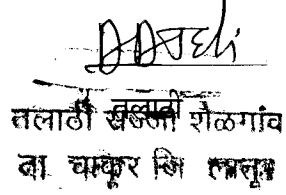 तलाठी
तलाठी सज्जा शेळगांव
ता चाकूर जि लातूर